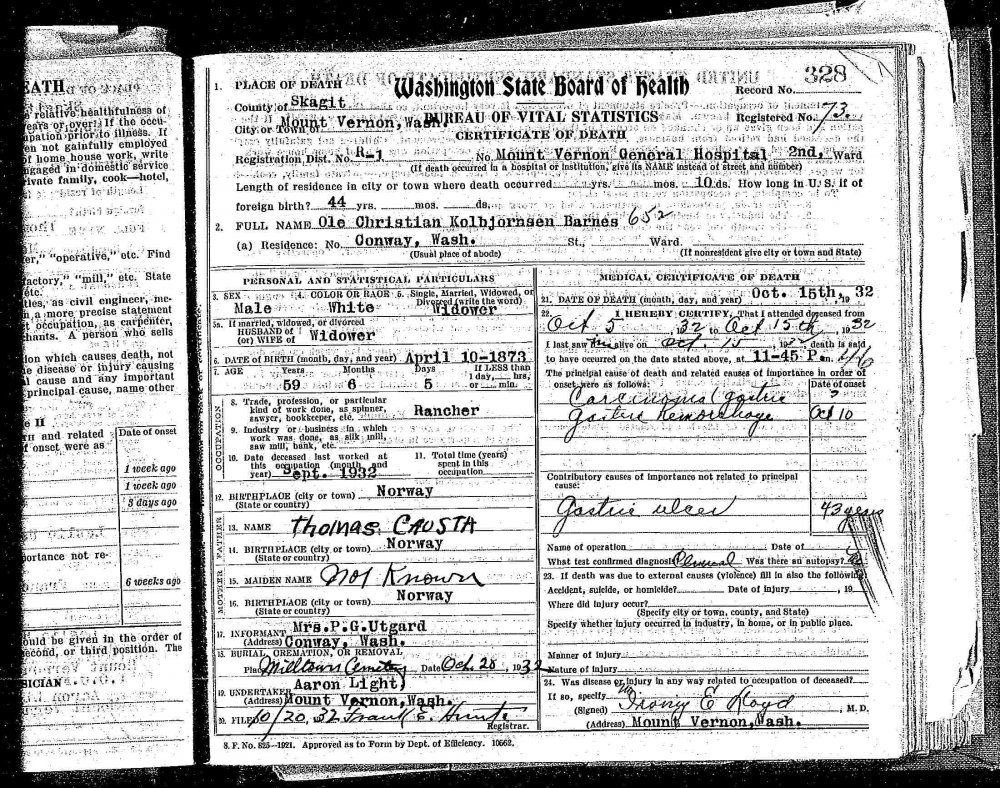 EATH
s relative healthfulness of
ears or over). If the occu-
upation prior to illness. If
en not gainfully employed
of home house work, write
ngaged in domestic service
rivate family, cook—hotel,
er," "operative," etc. Find
factory," "mill," etc. State
etc.
ties, as civil engineer, me-
n a more precise statement
t occupation, as carpenter,
chants. A person who sells
ion which causes death, not
e disease or injury causing
l cause and any important
principal cause, name other
e II
TH and related
f onset were as
Date of onset
1 week ago
1 week ago
3 days ago
portance not re-
6 weeks ago
ould be given in the order of
second, or third position. The
SICIAN
328
1. PLACE OF DEATH Washington State Board of Health Record No.
County of Skagit
City or Town of Mount Vernon, Wash. BUREAU OF VITAL STATISTICS Registered No. 73.
CERTIFICATE OF DEATH
Registration Dist. No. R-1 No. Mount Vernon General Hospital 2nd, Ward
(If death occurred in a hospital or institution, give its NAME instead of street and number)
Length of residence in city or town where death occurred yrs. mos. 10 ds. How long in U. S. if of
foreign birth? 44 yrs. mos. ds.
2. FULL NAME Ole Christian Kolbjornsen Barnes 652
(a) Residence: No. Conway, Wash. St., Ward.
(Usual place of abode) (If nonresident give city or town and State)
PERSONAL AND STATISTICAL PARTICULARS
3. SEX 4. COLOR OR RACE 5. Single, Married, Widowed, or
Divorced (write the word)
Male White Widower
5a. If married, widowed, or divorced
HUSBAND of
(or) WIFE of Widower
6. DATE OF BIRTH (month, day, and year) April 10-1873
7. AGE Years Months Days If LESS than
1 day, hrs.
59 6 5 or min.
OCCUPATION
8. Trade, profession, or particular
kind of work done, as spinner,
sawyer, bookkeeper, etc. Rancher
9. Industry or business in which
work was done, as silk mill,
saw mill, bank, etc.
10. Date deceased last worked at
this occupation (month and
year) Sept. 1932
11. Total time (years)
spent in this
occupation
12. BIRTHPLACE (city or town) Norway
(State or country)
FATHER
13. NAME Thomas CAUSTA
14. BIRTHPLACE (city or town) Norway
(State or country)
MOTHER
15. MAIDEN NAME Not Known
16. BIRTHPLACE (city or town) Norway
(State or country)
17. INFORMANT Mrs.P.G.Utgard
(Address) Conway, Wash.
18. BURIAL, CREMATION, OR REMOVAL
Place Milltown Cemetery Date Oct. 20, 1932
19. UNDERTAKER Aaron Light
(Address) Mount Vernon, Wash.
20. FILED 10/20, 32 Frank E. Registrar.
MEDICAL CERTIFICATE OF DEATH
21. DATE OF DEATH (month, day, and year) Oct. 15th, 19 32
22. I HEREBY CERTIFY, That I attended deceased from
Oct. 5, 32 to Oct 15th, 1932
I last saw him alive on Oct. 15, 1932, death is said
to have occurred on the date stated above, at 11-45 P m.
The principal cause of death and related causes of importance in order of
onset were as follows: Date of onset
Carcinoma gastric ?
Gastric Hemorrhage Oct 10
Contributory causes of importance not related to principal
cause:
Gastric ulcer 43 years
Name of operation Date of
What test confirmed diagnosis? Clinical Was there an autopsy? No
23. If death was due to external causes (violence) fill in also the following:
Accident, suicide, or homicide? Date of injury , 19
Where did injury occur?
(Specify city or town, county, and State)
Specify whether injury occurred in industry, in home, or in public place.
Manner of injury
Nature of injury
24. Was disease or injury in any way related to occupation of deceased?
If so, specify No
(Signed) M. D.
(Address) Mount Vernon, Wash.
S. F. No. 825--1921. Approved as to Form by Dept. of Efficiency. 10662.